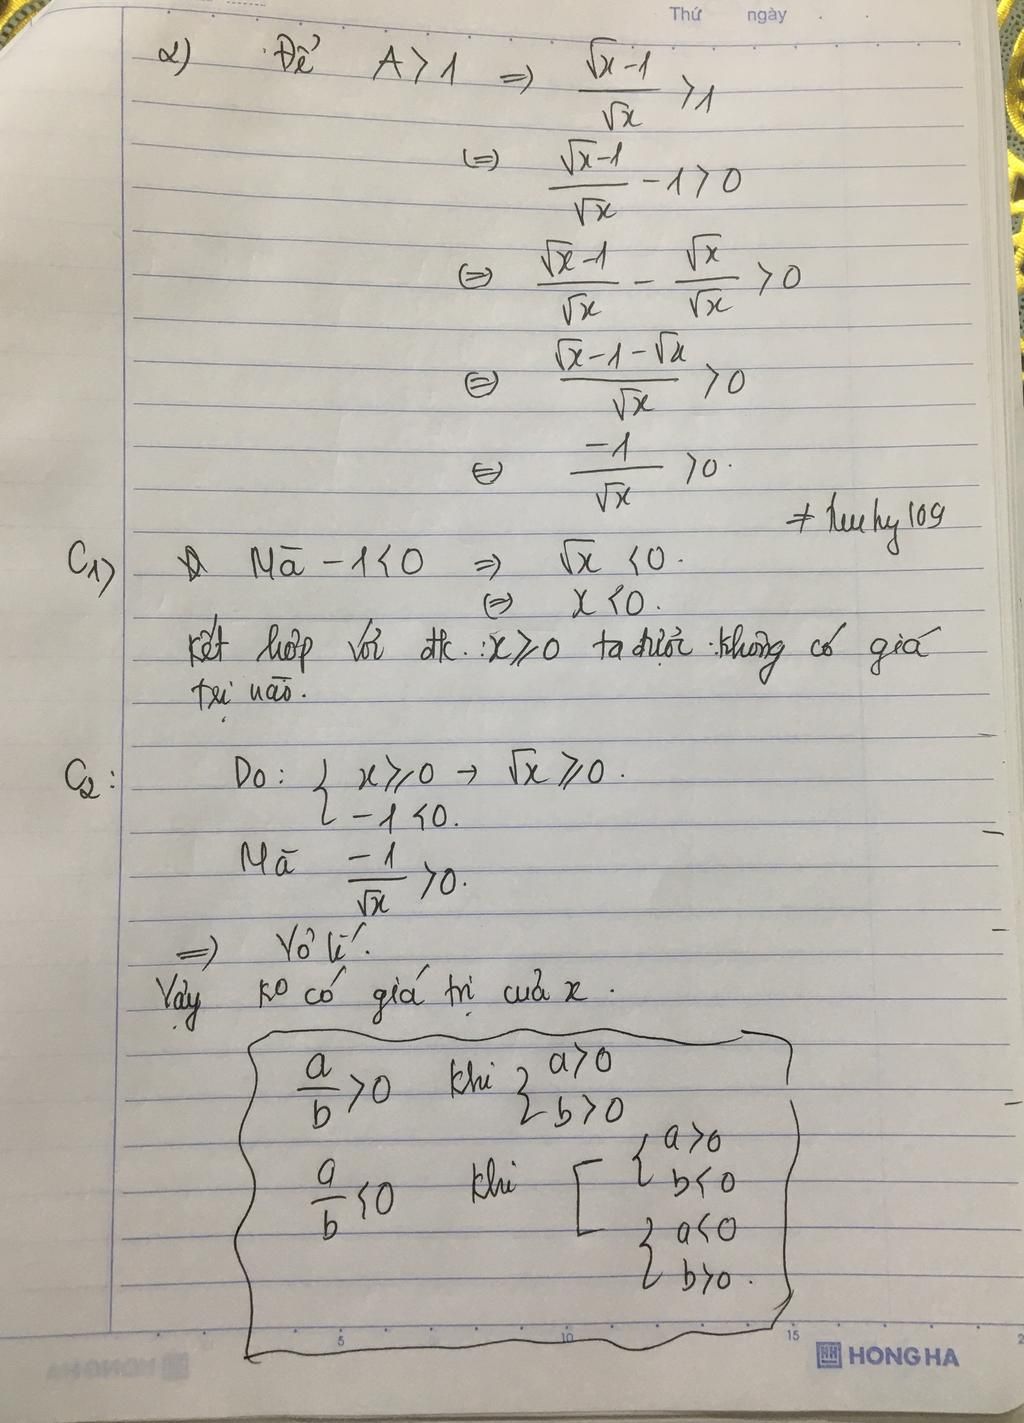 Thứ ngày
2) Để A > 1 => (√x-1)/√x > 1
(=) (√x-1)/√x - 1 > 0
(=) (√x-1)/√x - √x/√x > 0
(=) (√x-1-√x)/√x > 0
(=) -1/√x > 0.
C1) Mà -1 < 0 => √x < 0.
(=) x < 0.
Kết hợp với đk: x ⩾ 0 ta được: không có giá
trị nào.
C2: Do: { x ⩾ 0 → √x ⩾ 0.
-1 < 0.
Mà -1/√x > 0.
=) Vô lí.
Vậy ko có giá trị của x.
a/b > 0 khi { a > 0
b > 0
a/b < 0 khi [ { a > 0
b < 0
{ a < 0
b > 0.
5 10 15
HONG HA